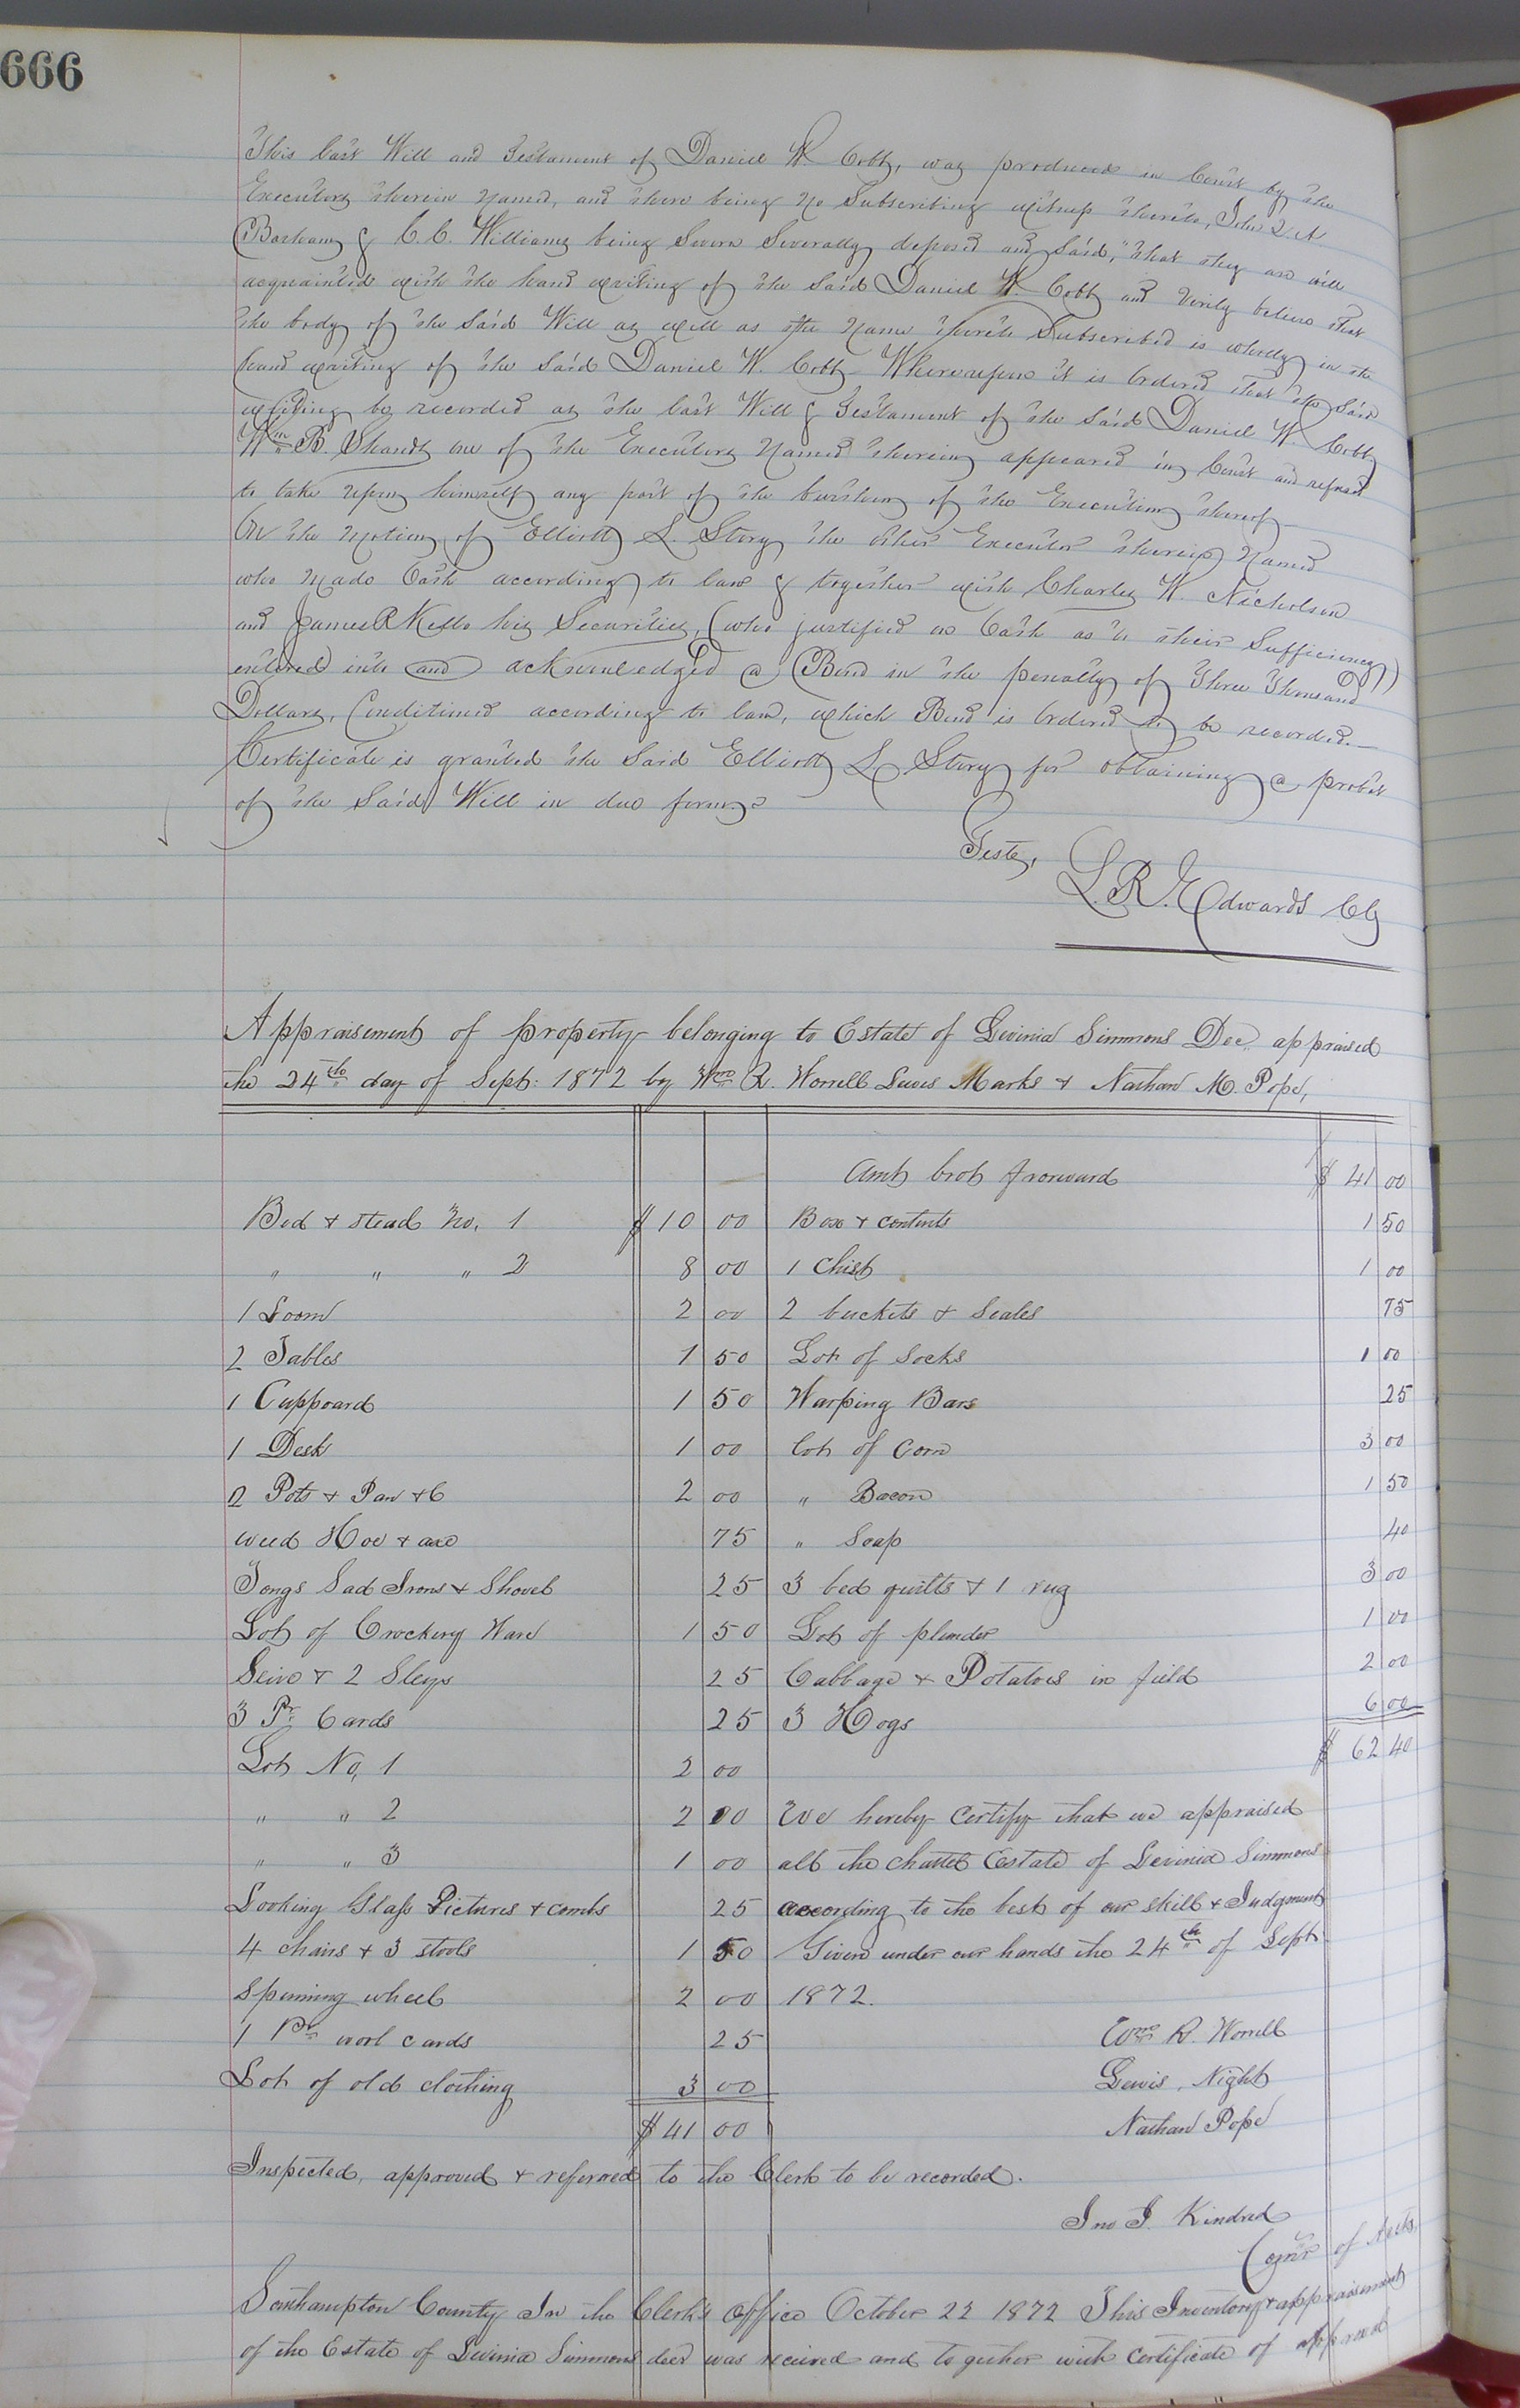 666
This last Will and Testament of Daniel W. Cobb, was produced in Court by the
Executors therein named, and there being no Subscribing witness thereto, John
Barham & C. C. Williams being Sworn Severally deposed and Said, "that they are well
acquainted with the hand writing of the Said Daniel W. Cobb and verily believe that
the body of the Said Will as well as the name thereto Subscribed is wholly in the
hand writing of the Said Daniel W. Cobb - Whereupon it is Ordered that the Said
writing be recorded as the last Will & Testament of the Said Daniel W. Cobb
Wm B. Shands one of the Executors named therein appeared in Court and refused
to take upon himself any part of the burthen of the Execution thereof -
On the motion of Elliott L. Story the other Executor therein named
who made Oath according to law & together with Charles W. Nicholson
and James R Kello his Securities, (who justified on Oath as to their Sufficiency)
entered into and acknowledged a Bond in the penalty of Three Thousand
Dollars, Conditioned according to law, which Bond is Ordered to be recorded.—
Certificate is granted the Said Elliott L. Story for obtaining a probat
of the Said Will in due form.
Teste,
L. R. Edwards Clk
Appraisement of property belonging to Estate of Levinia Simmons Dec. appraised
the 24th day of Sept: 1872 by Wm R. Worrell Lewis Marks & Nathan M. Pope,
Amt brot forward $ 41 00
Bed & stead No. 1 $ 10 00 Box & contents 1 50
" " " 2 8 00 1 Chist 1 00
1 Loom 2 00 2 buckets & Scales 75
2 Tables 1 50 Lot of Socks 1 00
1 Cuppoard 1 50 Warping Bars 25
1 Desk 1 00 Lot of Corn 3 00
2 Pots & Pan &C 2 00 " Bacon 1 50
weed Hoe & axe 75 " Soap 40
Tongs Sad Irons & Shovel 25 3 bed quilts & 1 rug 3 00
Lot of Crockery Ware 1 50 Lot of plunder 1 00
Seive & 2 Sleys 25 Cabbage & Potatoes in field 2 00
3 Pr Cards 25 3 Hogs 6 00
Lot No, 1 2 00 $ 62 40
" " 2 2 00 We hereby Certify that we appraised
" " 3 1 00 all the chattel Estate of Levinia Simmons
Looking Glass Pictures & combs 25 according to the best of our skill & Judgment
4 chairs & 3 stools 1 50 Given under our hands the 24th of Sept
Spinning wheel 2 00 1872.
1 Pr worl cards 25 Wm R. Worrell
Lot of old clothing 3 00 Lewis, Night
$ 41 00 Nathan Pope
Inspected, approved & referred to the Clerk to be recorded.
Jno J. Kindred
Comr of Accts,
Southampton County In the Clerk's Office October 22 1872 This Inventory & appraisement
of the Estate of Levinia Simmons decd was received and together with Certificate of approval